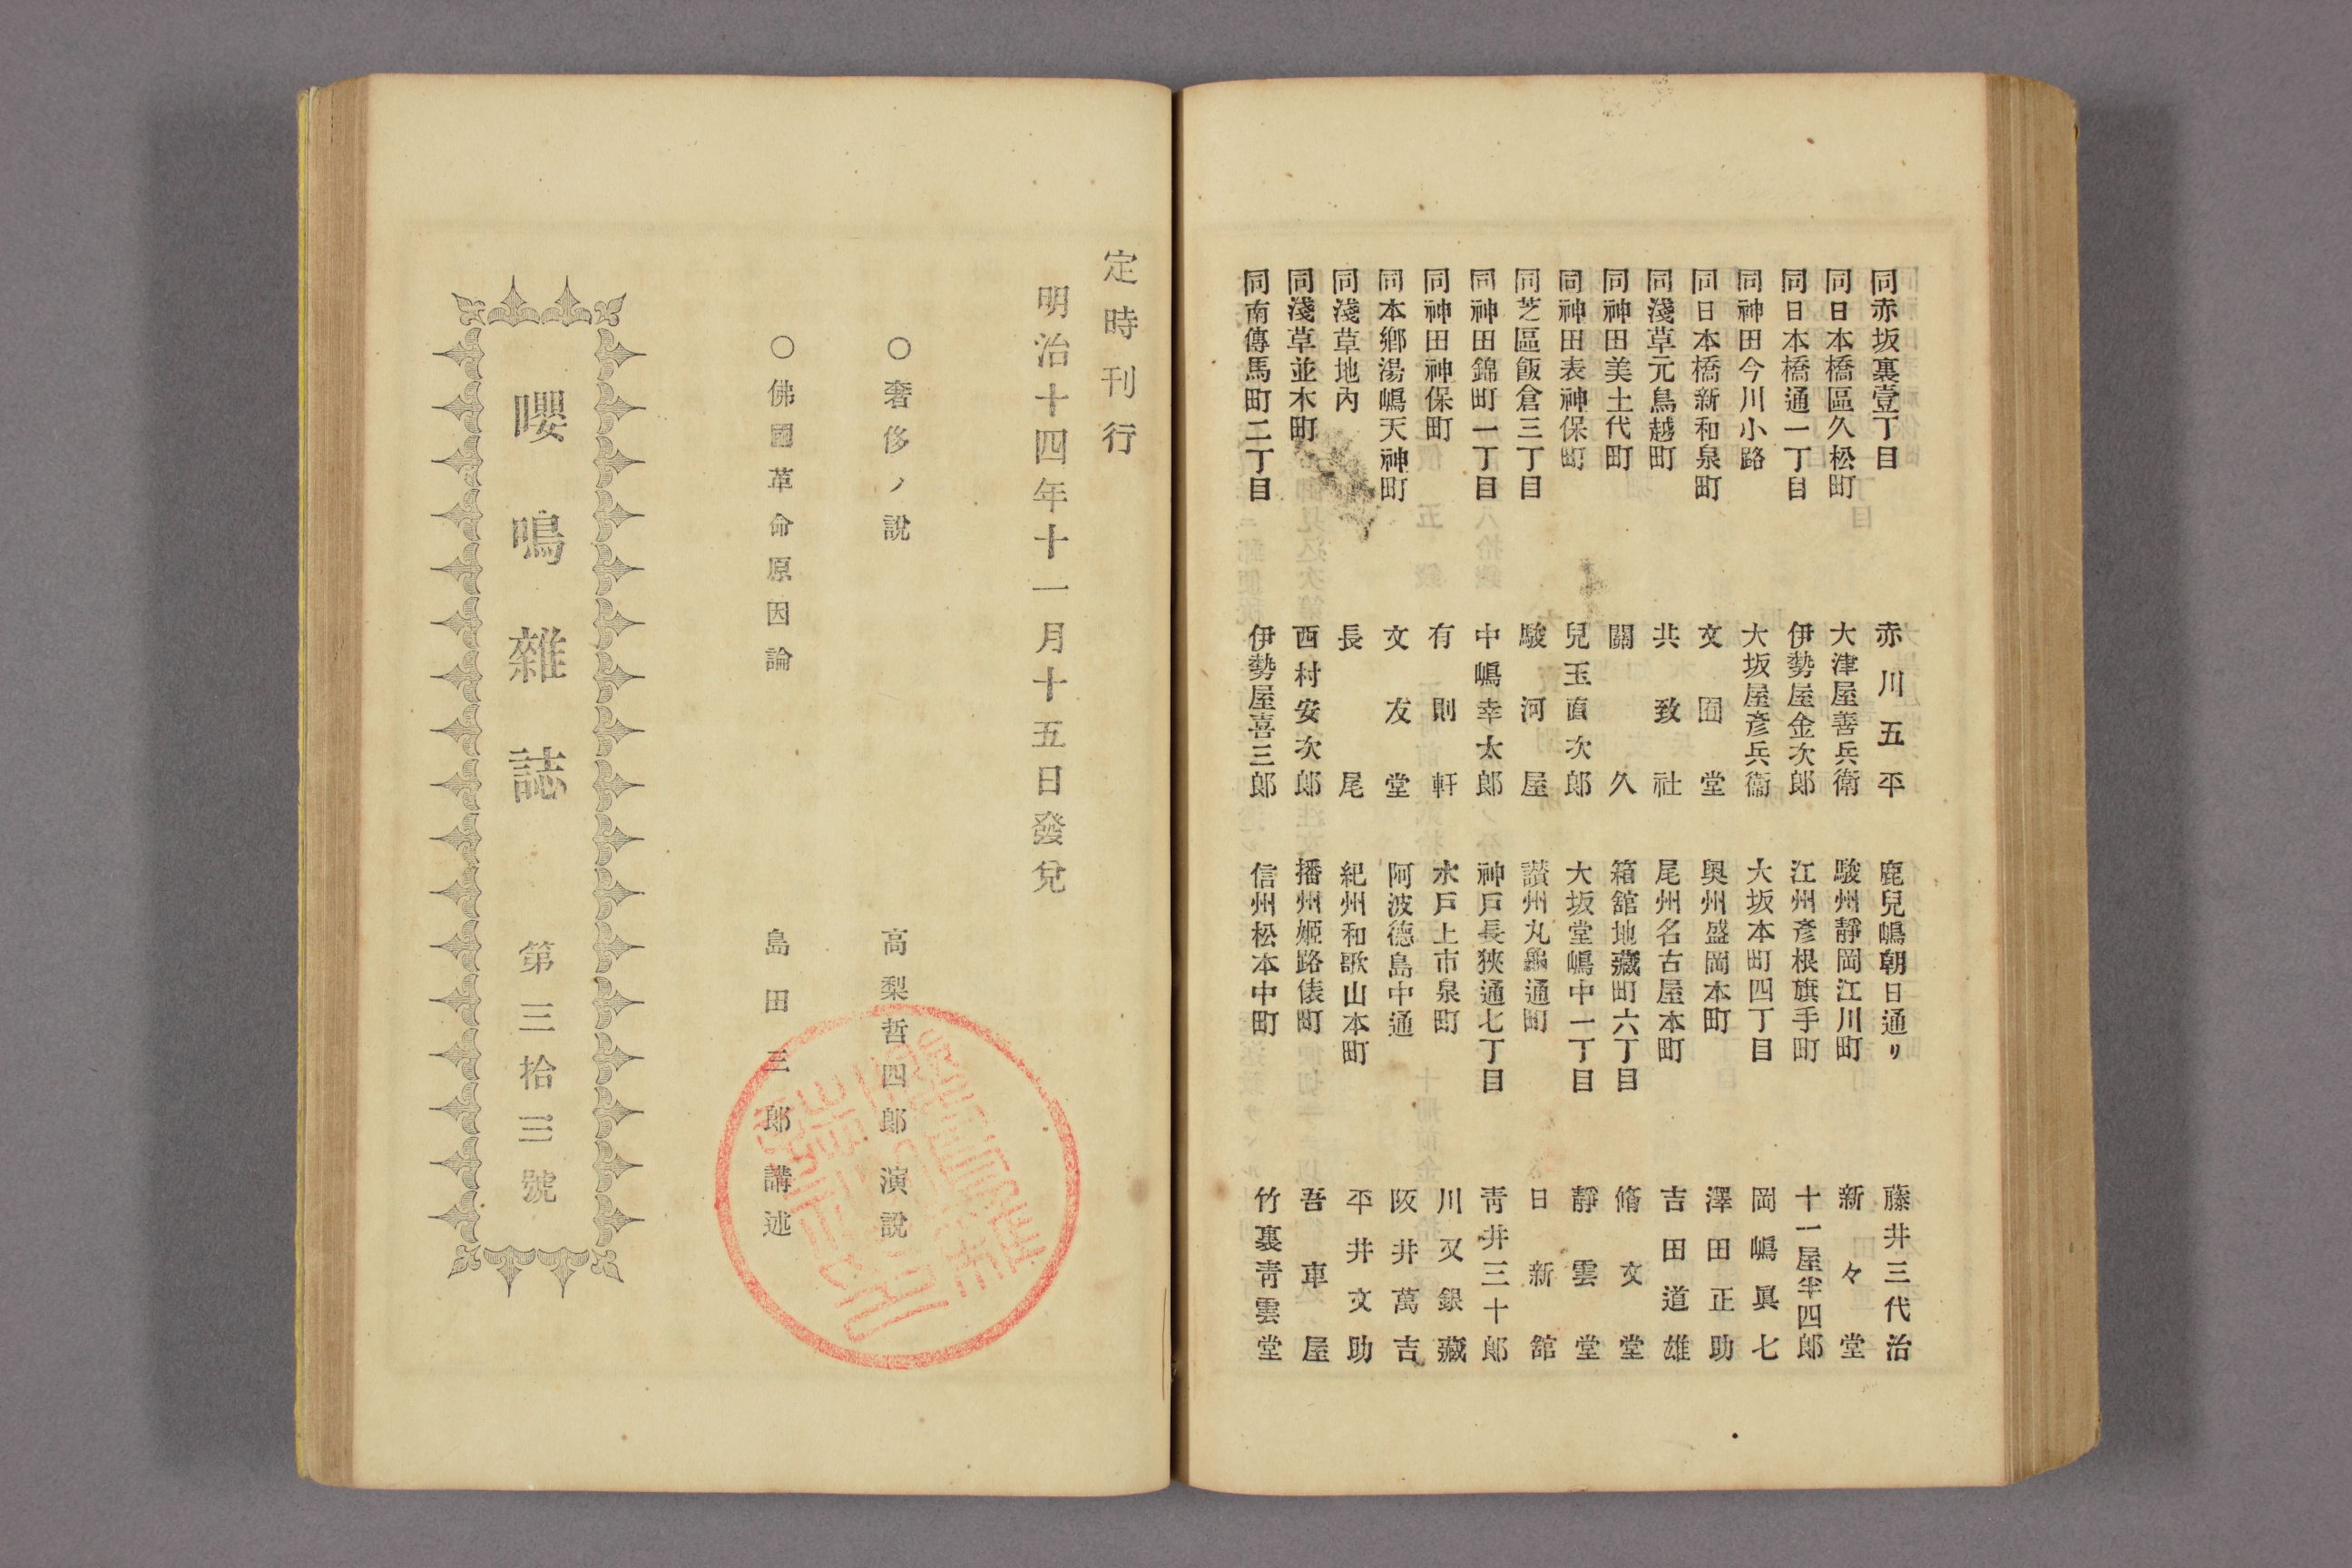 同赤坂裏壹丁目　赤川五平
同日本橋區久松町　大津屋善兵衛
同日本橋通一丁目　伊勢屋金次郎
同神田今川小路　大坂屋彦兵衞
同日本橋新和泉町　文囿堂
同淺草元鳥越町　共致社
同神田美土代町　關久
同神田表神保町　兒玉直次郎
同芝區飯倉三丁目　駿河屋
同神田錦町一丁目　中嶋幸太郎
同神田神保町　有則軒
同本鄕湯嶋天神町　文友堂
同淺草地內　長尾
同淺草並木町　西村安次郎
同南傳馬町二丁目　伊勢屋喜三郎
鹿兒嶋朝日通リ　藤井三代治
駿州靜岡江川町　新々堂
江州彦根旗手町　十一屋半四郎
大坂本町四丁目　岡嶋眞七
奥州盛岡本町　澤田正助
尾州名古屋本町　吉田道雄
箱舘地藏町六丁目　脩文堂
大坂堂嶋中一丁目　靜雲堂
讃州丸龜通町　日新舘
神戸長狹通七丁目　靑井三十郎
水戸上市泉町　川又銀藏
阿波德島中通　阪井萬吉
紀州和歌山本町　平井文助
播州姬路俵町　吾車屋
信州松本中町　竹裏靑雲堂
定時刊行
明治十四年十一月十五日發兌
○奢侈ノ說　高梨哲四郎演說
○佛國革命原因論　島田三郎講述
嚶鳴雜誌　第三拾三號